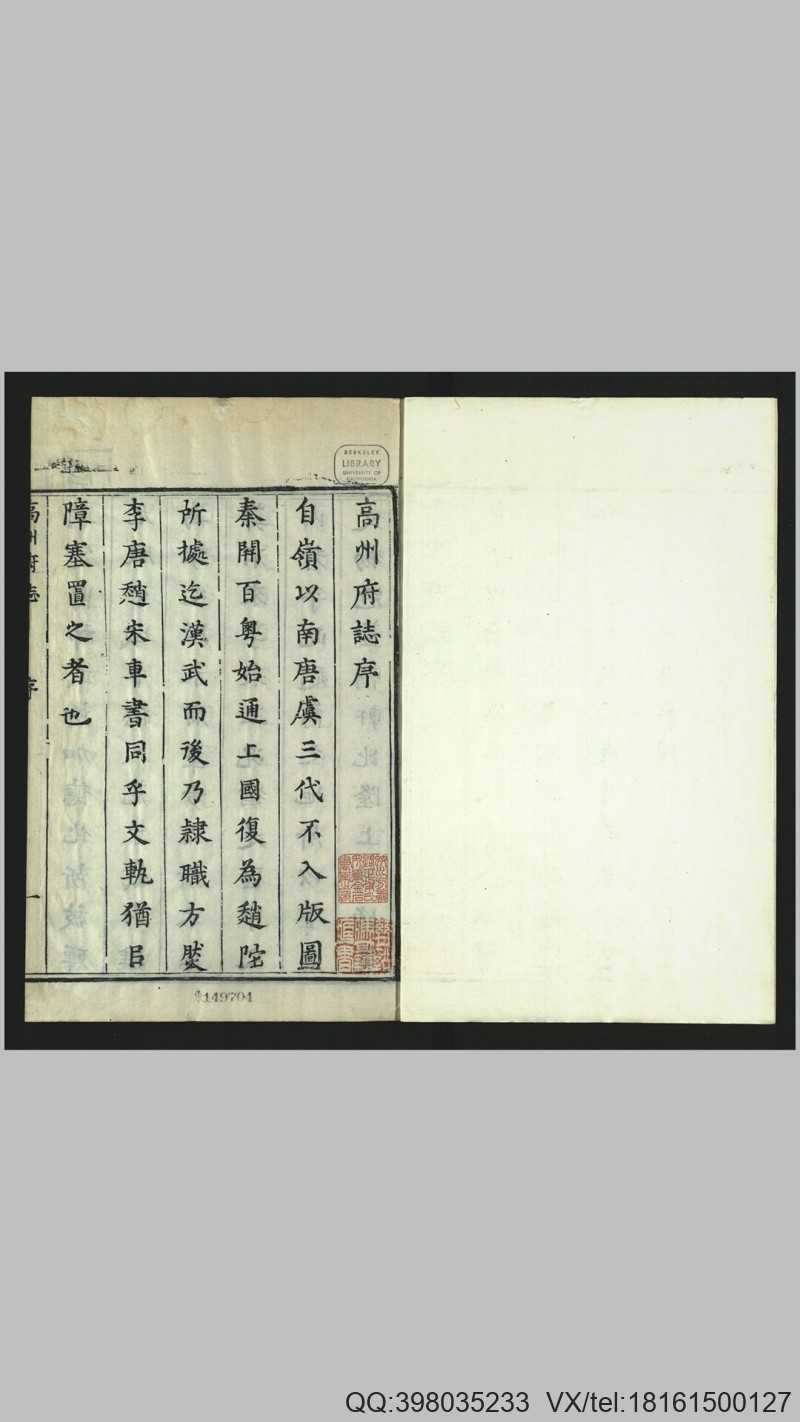 高州府誌序
自嶺以南唐虞三代不入版圖
秦開百粵始通上國復為趙陀
所據迄漢武而後乃隷職方然
李唐趙宋車書同乎文軌猶㠯
障塞置之者也
高州府志 序 一
BERKELEY
LIBRARY
UNIVERSITY OF
CALIFORNIA
149704
QQ:398035233 VX/tel:18161500127